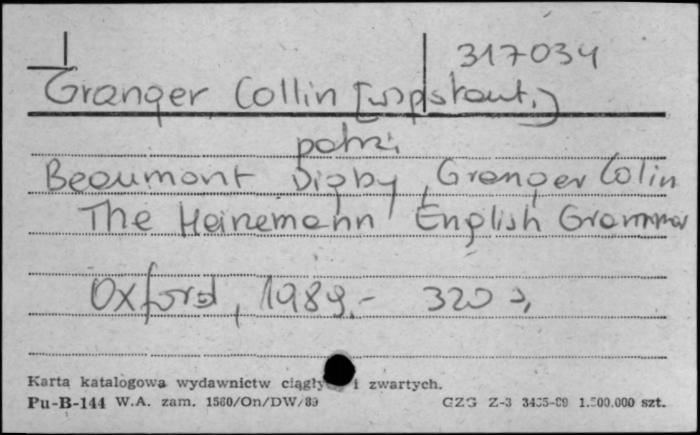 317034
Granger Collin [współaut.]
patrz
Beaumont Digby, Granger Colin
The Heinemann English Grammar
Oxford, 1989.- 320 s.
Karta katalogowa wydawnictw ciągły i zwartych.
Pu-B-144 W.A. zam. 1560/On/DW/89 GZG Z-3 3435-89 1.500.000 szt.